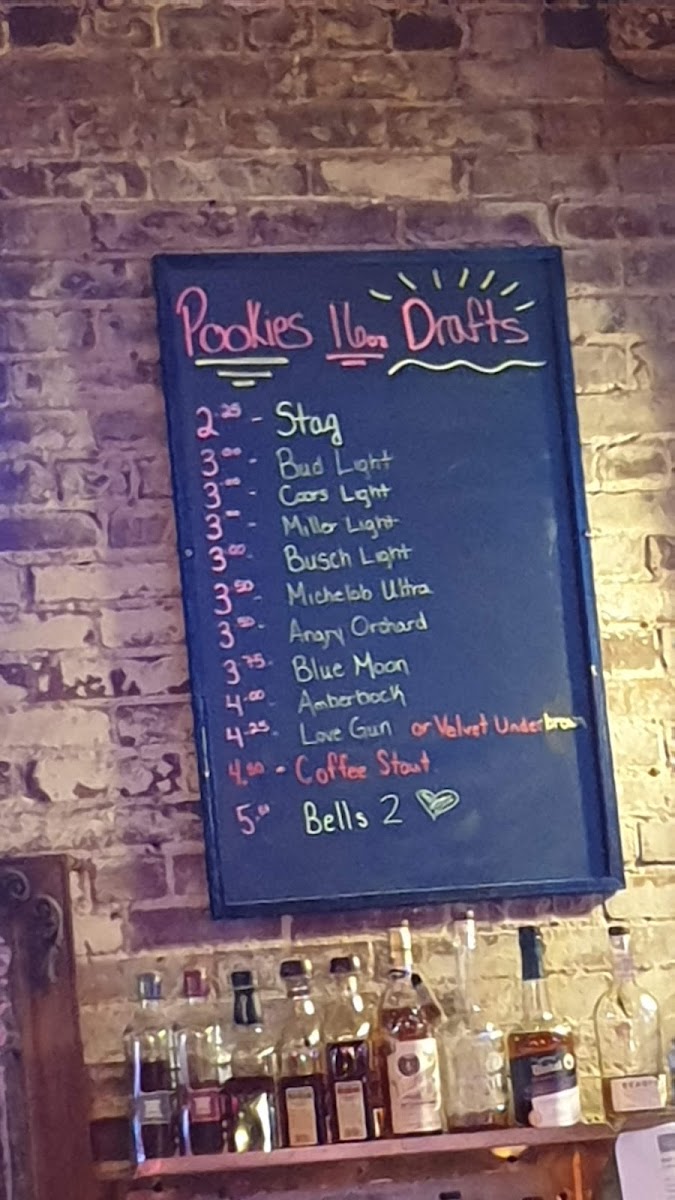 Pookies 16oz Drafts
2.25 - Stag
3.00 - Bud Light
3.00 - Coors Light
3.00 - Miller Light
3.00 - Busch Light
3.50 - Michelob Ultra
3.50 - Angry Orchard
3.75 - Blue Moon
4.00 - Amberbock
4.25 - Love Gun or Velvet Underbrown
4.50 - Coffee Stout
5.00 Bells 2 ♡